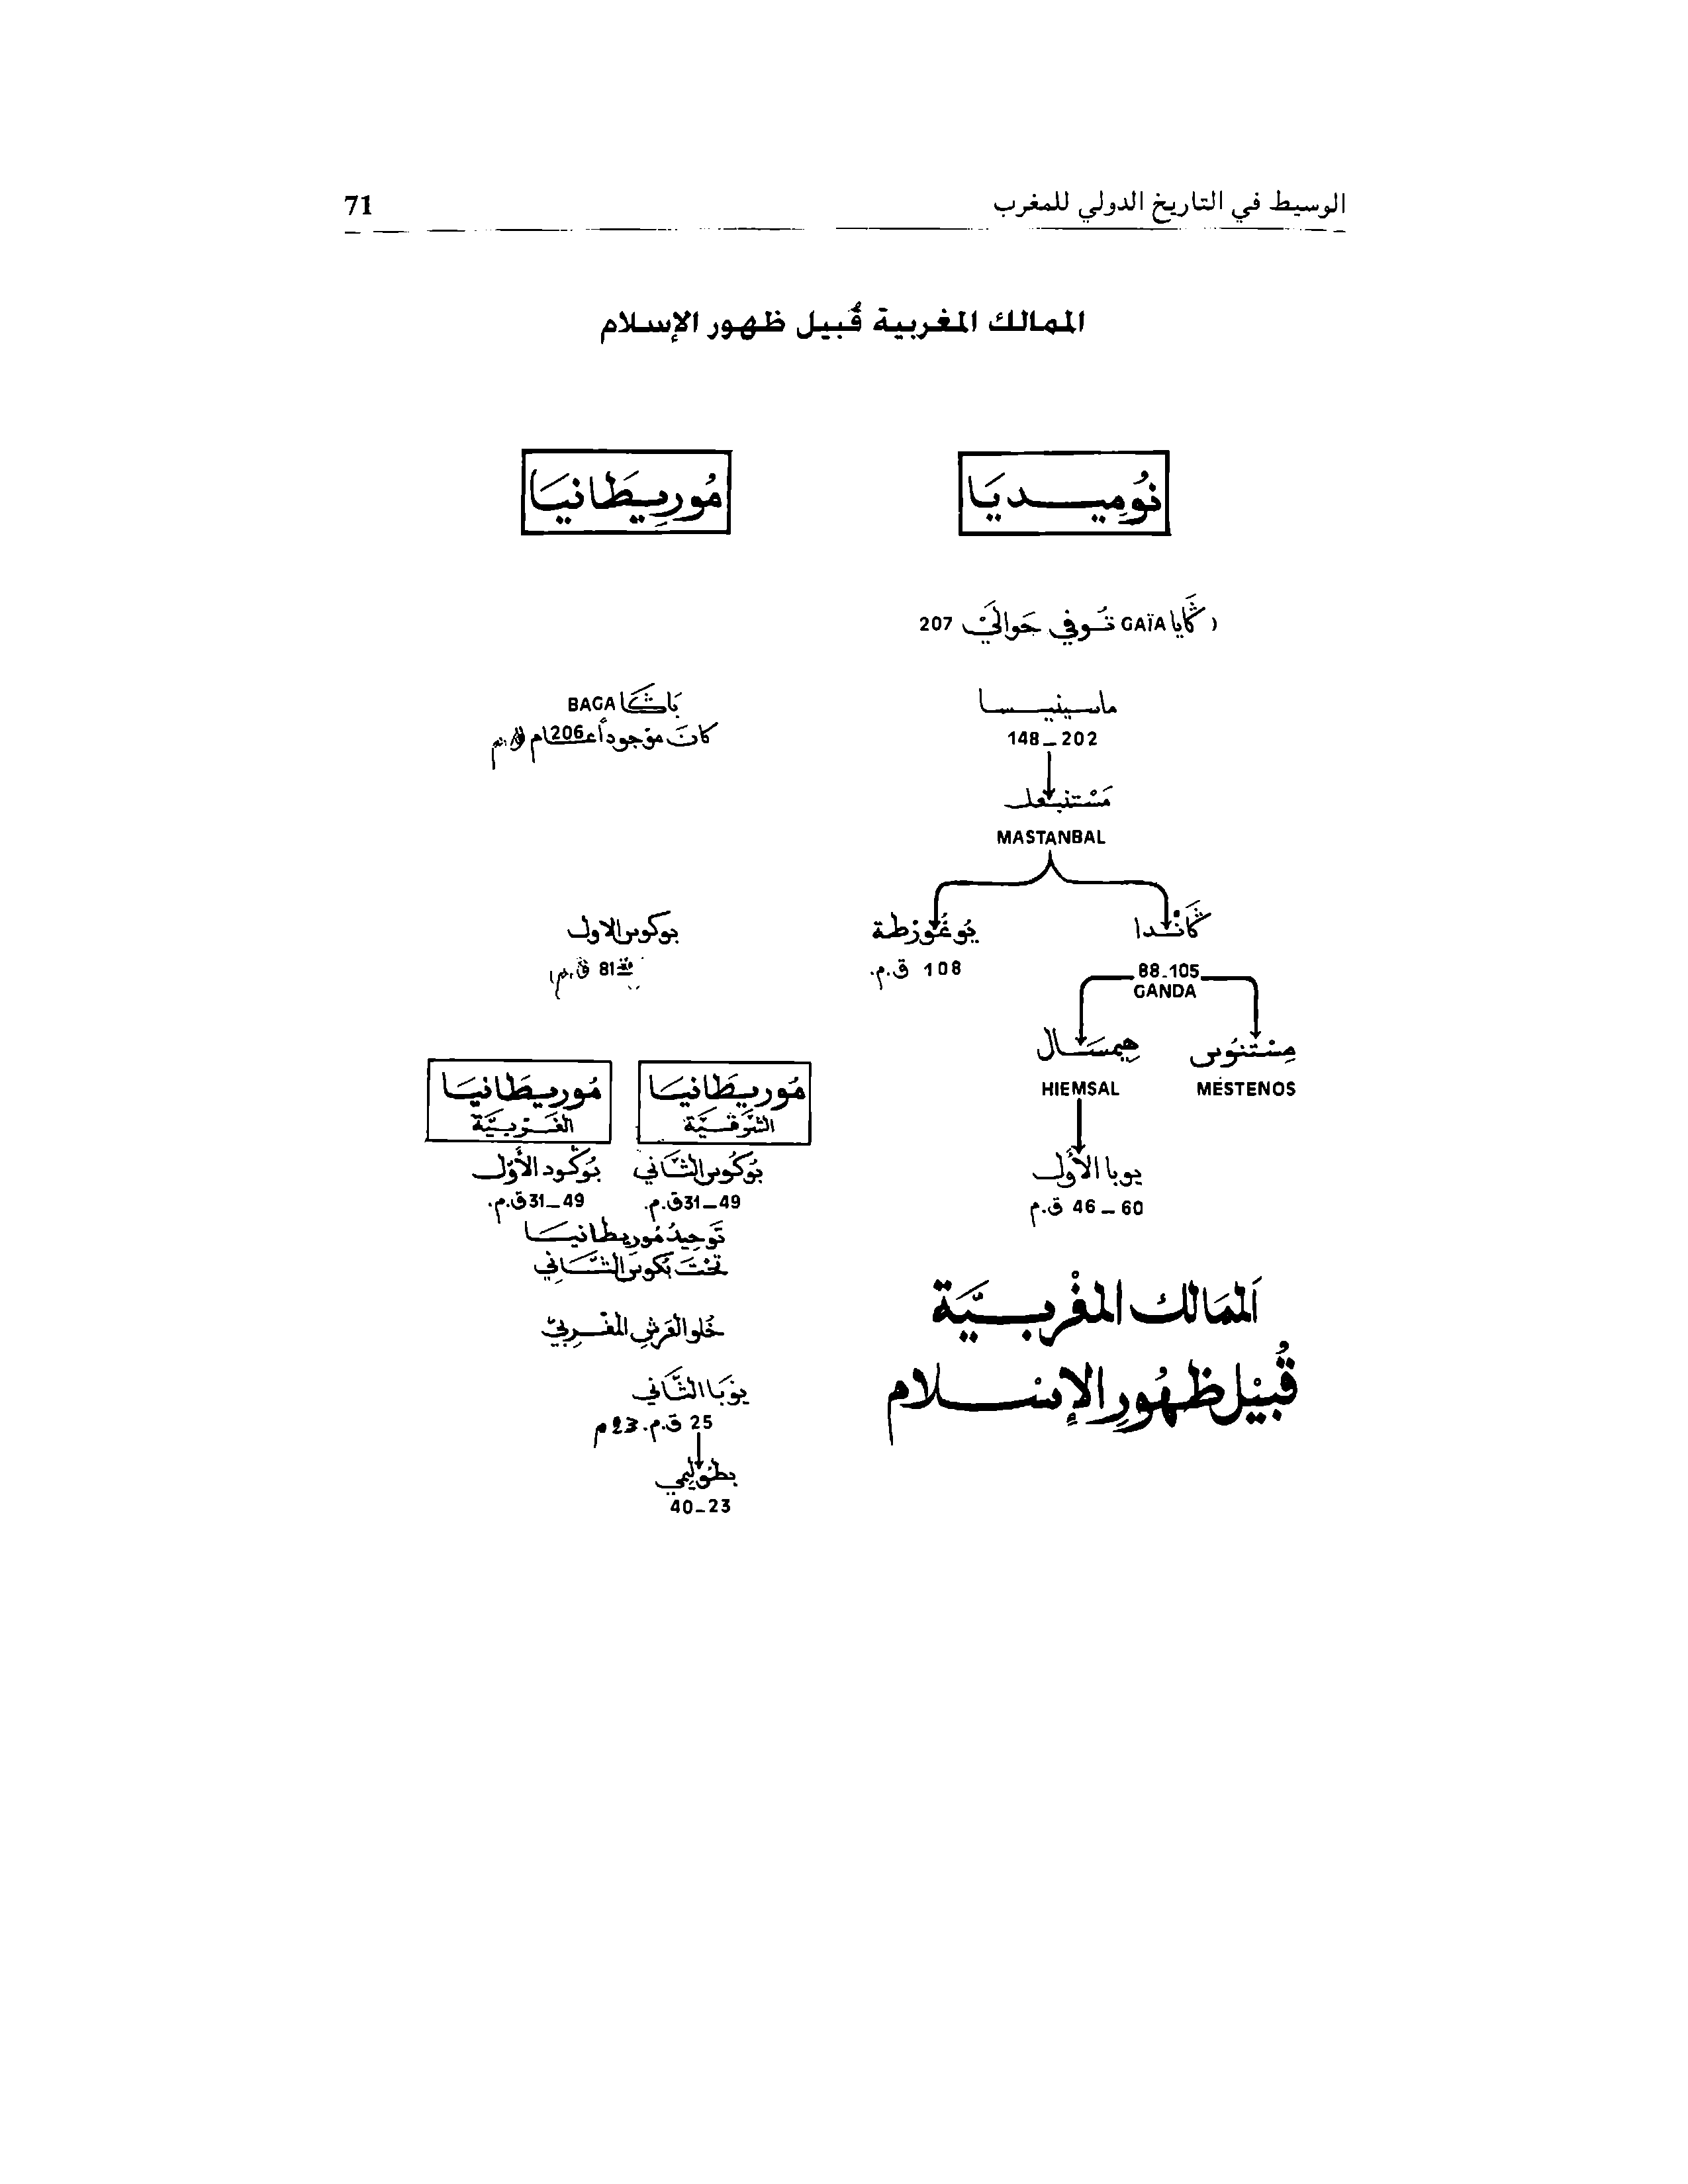 الوسيط في التاريخ الدولي للمغرب 71
الممالك المغربية قُبيل ظهور الإسلام
نُومِيديَا
(ڭَايا GAÏA تُوفي حَوالَيْ 207
ماسينيسا
202_148
مَسْتنبعل
MASTANBAL
ڭَانْدا
88_105
GANDA
يُوغُورْطة
108 ق.م.
مِسْتنُوس
MÉSTENOS
هِيمسَال
HIEMSAL
يوبا الأَول
60 _ 46 ق.م
مُورِيطَانيَا
بَاڭَا BAGA
كانَ موْجوداً عام 206 ق.م
بوكوس الاول
81 ق.م)
مُوريطَانيَا
الشَّرقيَّة
بُوكُوس الثَّاني
49_31 ق.م.
مُوريطَانيَا
الغَربيَّة
بُوكُود الأَوّل
49_31 ق.م.
تَوحِيدُ مُوريطانيَا
تحْتَ بُكوس الثَّاني
خُلو العَرشِ المغْربيّ
يوُبَا الثَّاني
25 ق.م. 23 م
بطُوليمي
40_23
اَلممَالك المغْربيَّة
قُبيْل ظهُورِ الإسْلام